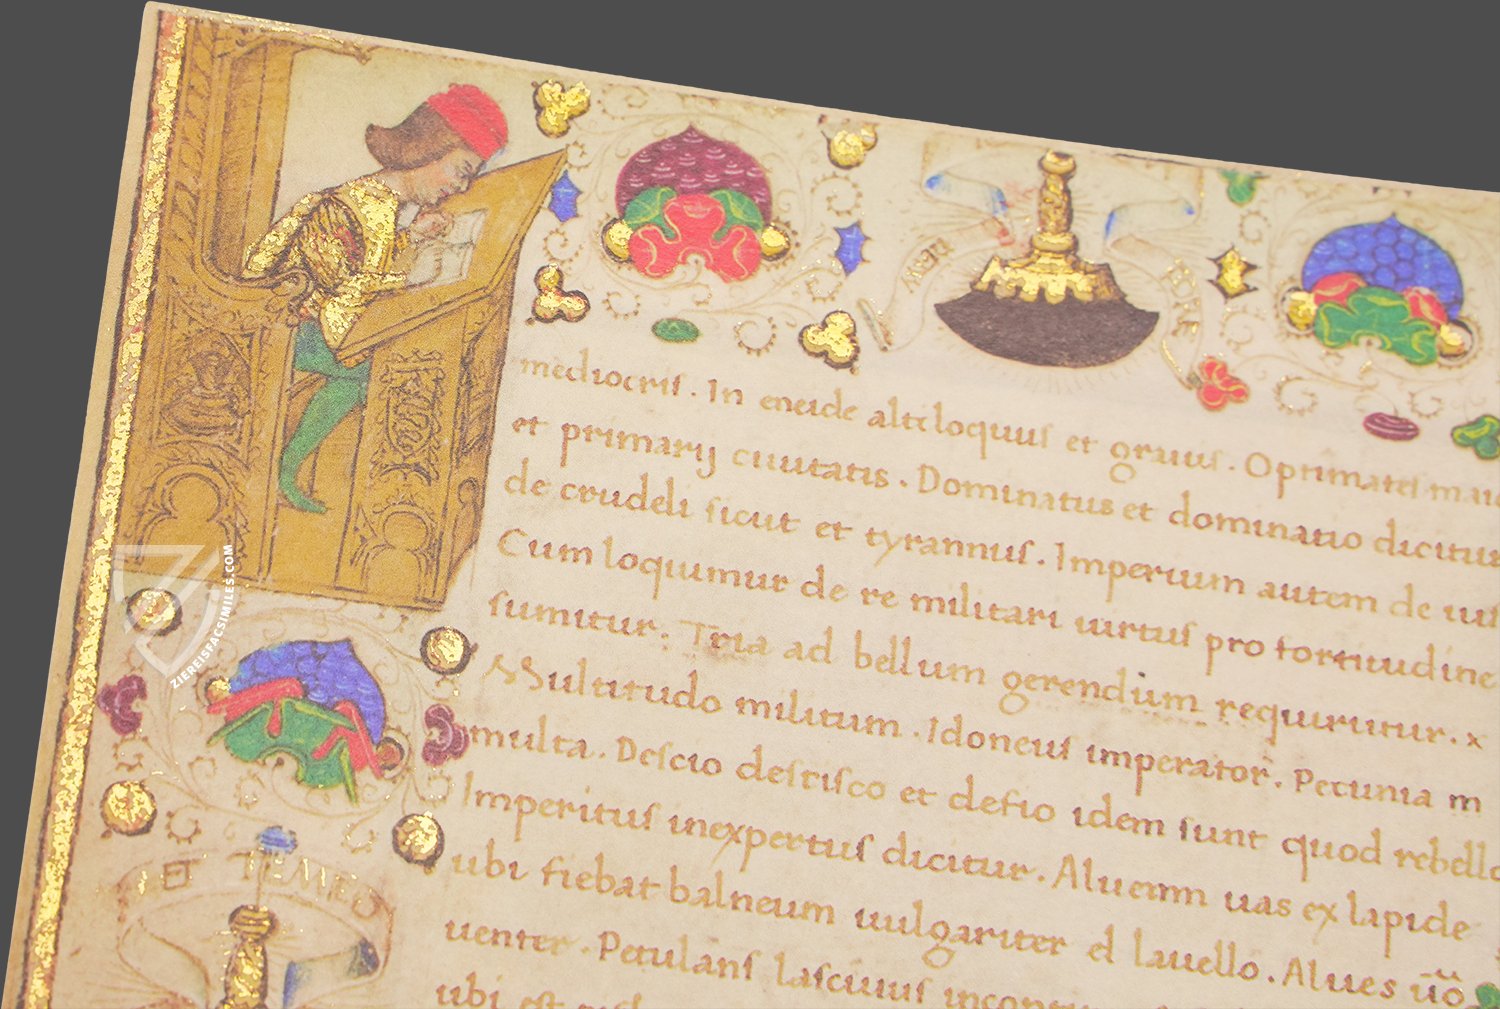 mediocris. In eneide altiloquus et grauis. Oprimates
et primarij ciuitatis. Dominatus et dominatio dicitur
de crudeli sicut et tyrannus. Imperium autem de
Cum loquimur de re militari uirtus pro fortitudine
sumitur: Tria ad bellum gerendum requiruntur. x
Multitudo militum. Idoneus imperator. Pecunia m
multa. Descio descisco et defio idem sunt quod
Imperitus inexpertus dicitur. Alueum uas ex lapide
ubi fiebat balneum uulgariter el lauello. Alues
uenter. Petulans lasciuus
ubi est
ET TIMEO
ZIEREISFACSIMILES.COM